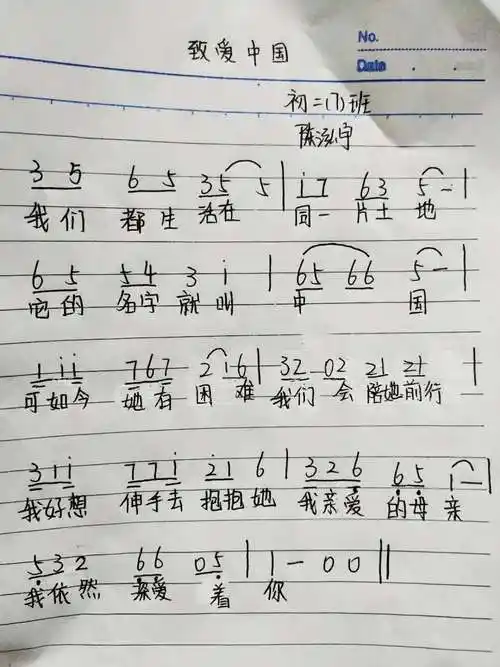 No.
致爱中国
Date
初二(7)班
陈泓宇
3 5 6 5 35 5 | i7 63 5 - |
我们 都生 活在 同一 片土 地
6 5 54 3 i | 65 66 5 - |
它的 名字 就 叫 中 国
1 i i 767 2 16 | 32 02 21 21 |
可如今 她有 困 难 我们 会 陪她前行
3 1 i 7 7 i i1 6 | 3 2 6 6 5 1 - |
我好想 伸手去 抱抱她 我亲爱 的母亲
5 3 2 66 05 | 1 - 0 0 ||
我依然 深爱 着 你